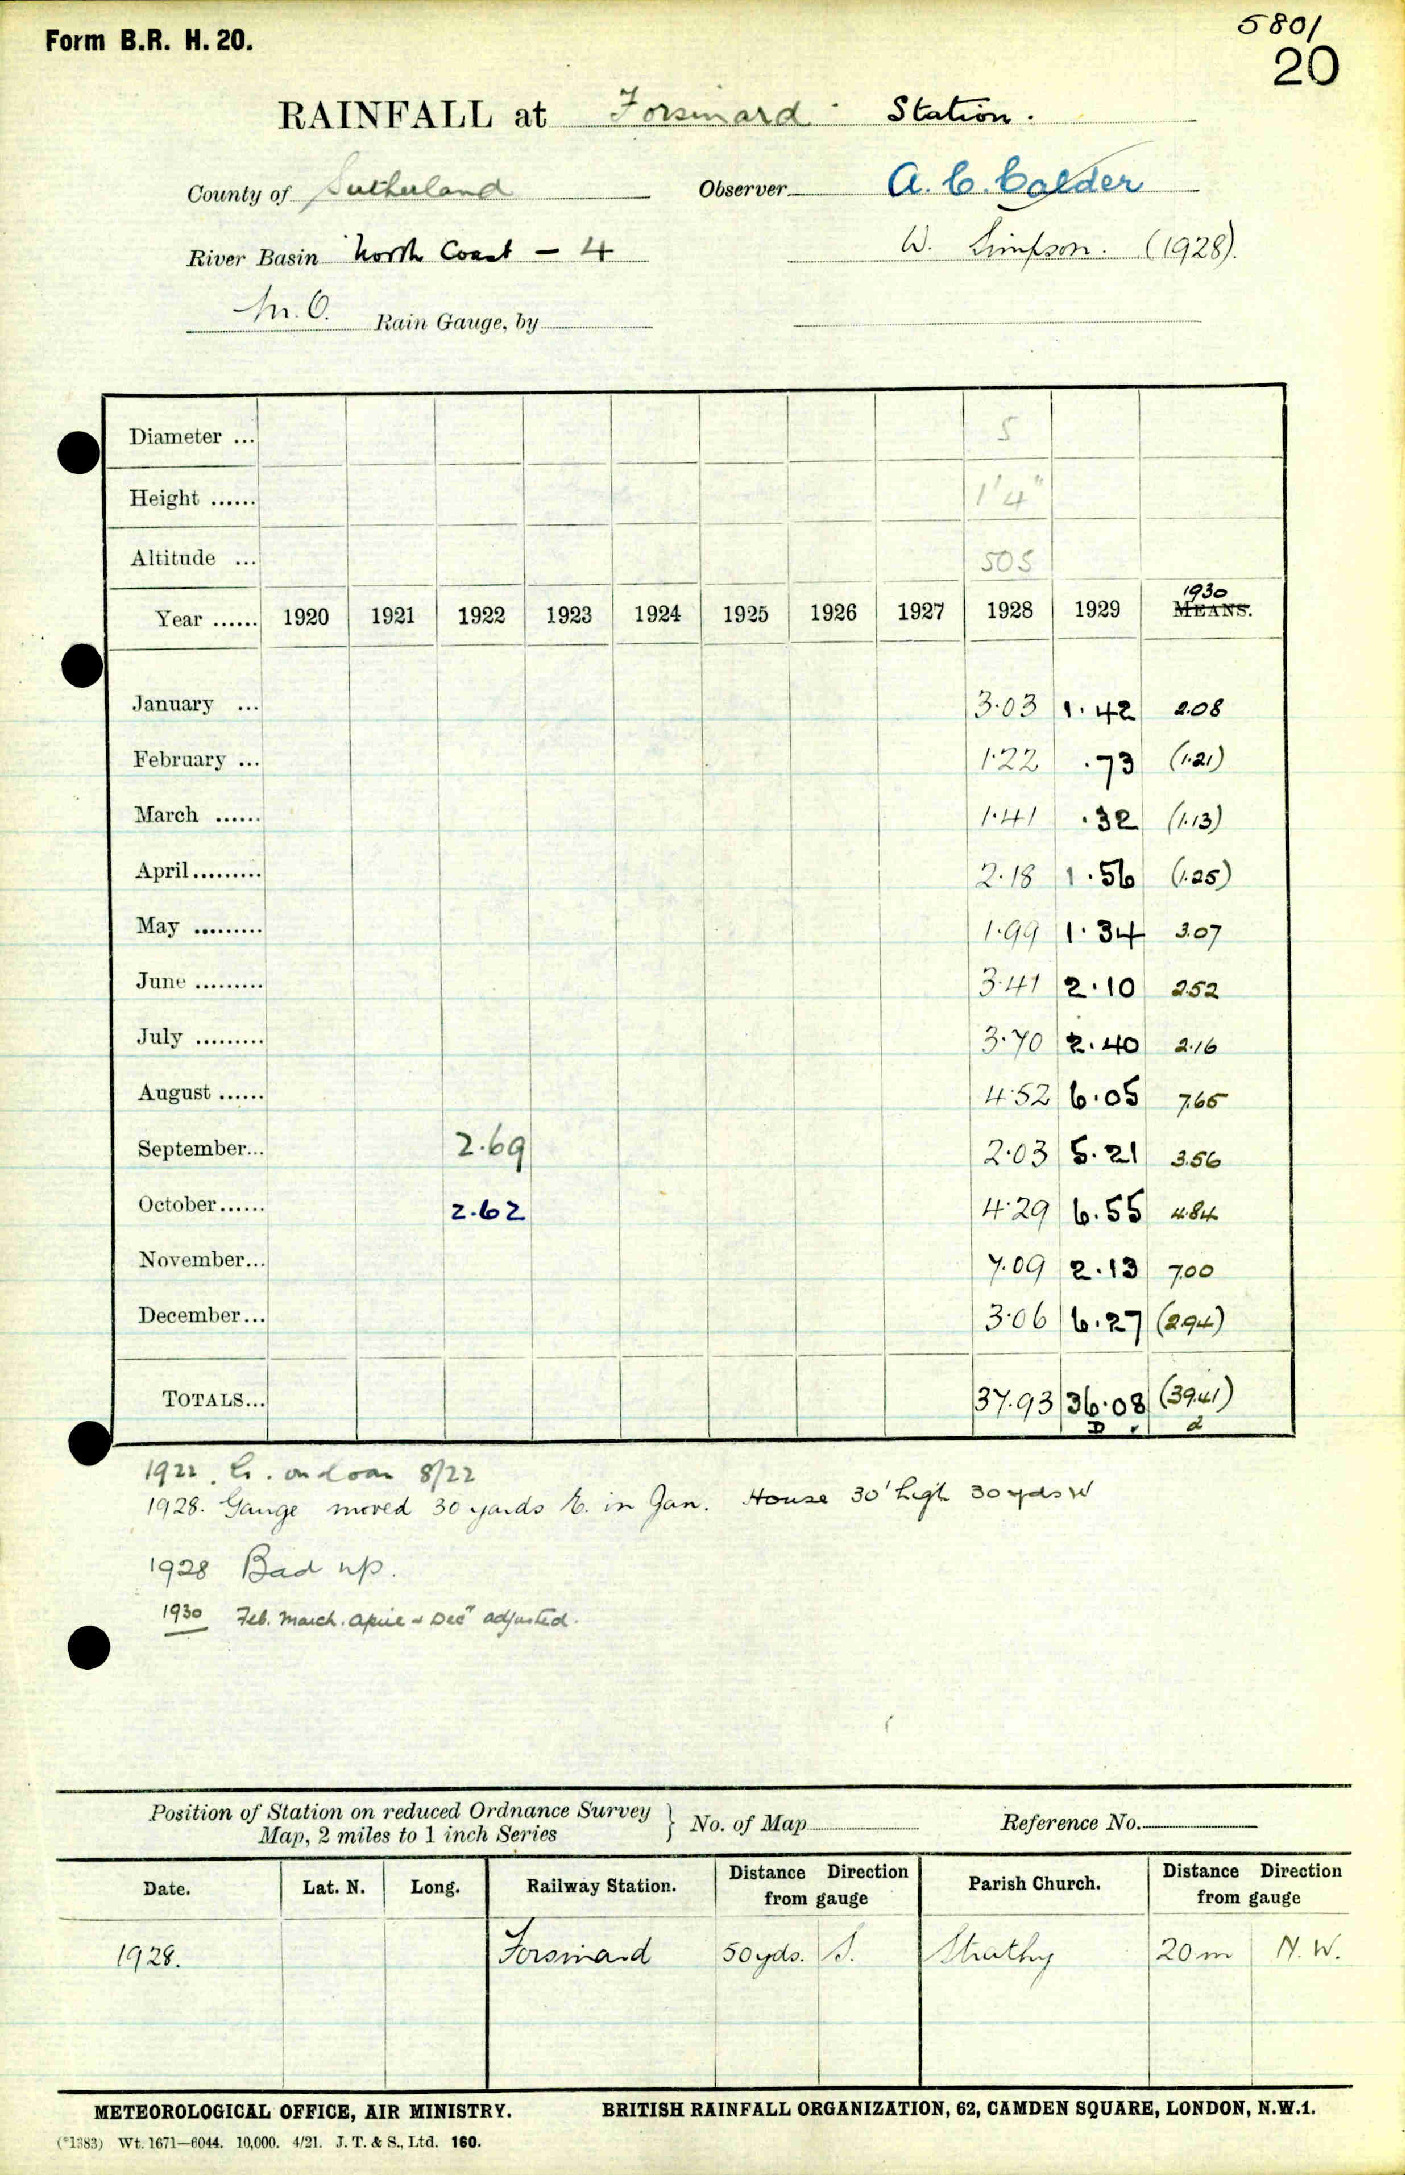 Form B.R. H. 20.
5801
20
RAINFALL at Forsinard Station.
County of Sutherland Observer A. C. Calder
River Basin North Coast - 4 W. Simpson. (1928).
M.O. Rain Gauge, by
Diameter ... 5
Height ...... 1'4"
Altitude ... 505
Year ...... 1920 1921 1922 1923 1924 1925 1926 1927 1928 1929 1930 MEANS.
January ... 3.03 1.42 2.08
February ... 1.22 .73 (1.21)
March ...... 1.41 .32 (1.13)
April......... 2.18 1.56 (1.25)
May ......... 1.99 1.34 3.07
June ......... 3.41 2.10 2.52
July ......... 3.70 2.40 2.16
August ...... 4.52 6.05 7.65
September... 2.69 2.03 5.21 3.56
October...... 2.62 4.29 6.55 4.84
November... 7.09 2.13 7.00
December... 3.06 6.27 (2.94)
TOTALS... 37.93 36.08 (39.41)
D d
1922. G. on loan 8/22
1928. Gauge moved 30 yards E. in Jan. House 30' high 30 yds W
1928 Bad up.
1930 Feb. March. April & Decr adjusted.
Position of Station on reduced Ordnance Survey Map, 2 miles to 1 inch Series } No. of Map Reference No.
Date. Lat. N. Long. Railway Station. Distance Direction from gauge Parish Church. Distance Direction from gauge
1928. Forsinard 50 yds. S. Strathy 20 m N.W.
METEOROLOGICAL OFFICE, AIR MINISTRY. BRITISH RAINFALL ORGANIZATION, 62, CAMDEN SQUARE, LONDON, N.W.1.
(*1383) Wt. 1671—6044. 10,000. 4/21. J. T. & S., Ltd. 160.